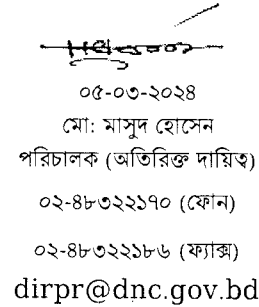 ০৫-০৩-২০২৪
মো: মাসুদ হোসেন
পরিচালক (অতিরিক্ত দায়িত্ব)
০২-৪৮৩২২১৭০ (ফোন)
০২-৪৮৩২২১৮৬ (ফ্যাক্স)
dirpr@dnc.gov.bd